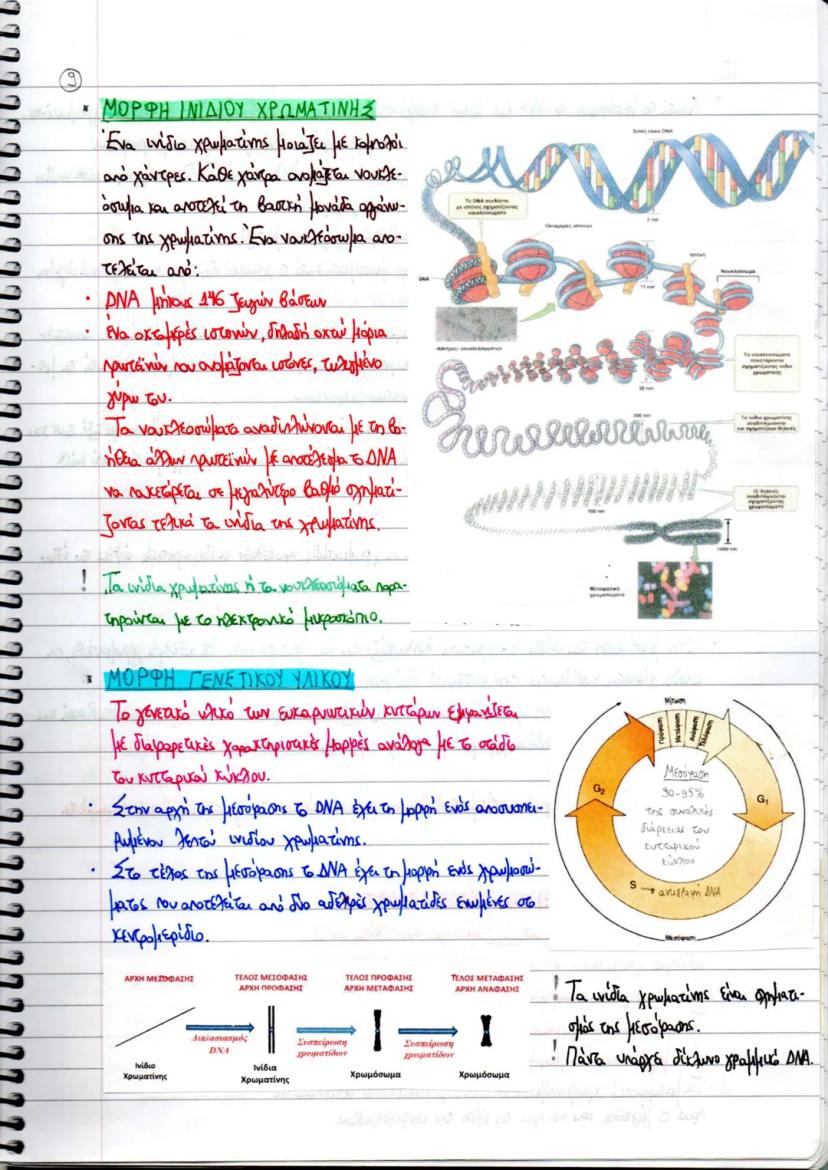 9
ΜΟΡΦΗ ΙΝΙΔΙΟΥ ΧΡΩΜΑΤΙΝΗΣ
Ένα ινίδιο χρωματίνης μοιάζει με κομπολόι
από χάντρες. Κάθε χάντρα ονομάζεται νουκλε-
όσωμα και αποτελεί τη βασική μονάδα οργάνω-
σης της χρωματίνης. Ένα νουκλεόσωμα απο-
τελείται από:
· DNA μήκους 146 ζευγών βάσεων
· ένα οκταμερές ιστονών, δηλαδή οκτώ μόρια
πρωτεϊνών που ονομάζονται ιστόνες, τυλιγμένο
γύρω του.
Τα νουκλεοσώματα αναδιπλώνονται με τη βο-
ήθεια άλλων πρωτεϊνών με αποτέλεσμα το DNA
να πακετάρεται σε μεγαλύτερο βαθμό σχηματί-
ζοντας τελικά τα ινίδια της χρωματίνης.
! Τα ινίδια χρωματίνης ή τα νουκλεοσώματα παρα-
τηρούνται με το ηλεκτρονικό μικροσκόπιο.
Διπλή έλικα DNA
Το DNA συνδέεται
με ιστόνες σχηματίζοντας
νουκλεοσώματα
2 nm
Οκταμερές ιστονών
Ιστόνη
Νουκλεόσωμα
DNA
11 nm
«Χάντρες» νουκλεοσωμάτων
Τα νουκλεοσώματα
πακετάρονται
σχηματίζοντας ινίδιο
χρωματίνης
30 nm
300 nm
Τα ινίδια χρωματίνης
αναδιπλώνονται
και σχηματίζουν θηλειές
Οι θηλειές
αναδιπλώνονται
σχηματίζοντας
χρωμοσώματα
700 nm
1400 nm
Μεταφασικά
χρωμοσώματα
ΜΟΡΦΗ ΓΕΝΕΤΙΚΟΥ ΥΛΙΚΟΥ
Το γενετικό υλικό των ευκαρυωτικών κυττάρων εμφανίζεται
με διαφορετικές χαρακτηριστικές μορφές ανάλογα με το στάδιο
του κυτταρικού κύκλου.
· Στην αρχή της μεσόφασης το DNA έχει τη μορφή ενός αποσυσπει-
ρωμένου λεπτού ινιδίου χρωματίνης.
· Στο τέλος της μεσόφασης το DNA έχει τη μορφή ενός χρωμοσώ-
ματος που αποτελείται από δύο αδελφές χρωματίδες ενωμένες στο
κεντρομερίδιο.
Μίτωση
Πρόφαση
Μετάφαση
Ανάφαση
Τελόφαση
G2
G1
Μεσόφαση
90-95%
της συνολικής
διάρκειας του
κυτταρικού
κύκλου
S → αντιγραφή DNA
Μεσόφαση
ΑΡΧΗ ΜΕΣΟΦΑΣΗΣ
ΤΕΛΟΣ ΜΕΣΟΦΑΣΗΣ
ΑΡΧΗ ΠΡΟΦΑΣΗΣ
ΤΕΛΟΣ ΠΡΟΦΑΣΗΣ
ΑΡΧΗ ΜΕΤΑΦΑΣΗΣ
ΤΕΛΟΣ ΜΕΤΑΦΑΣΗΣ
ΑΡΧΗ ΑΝΑΦΑΣΗΣ
Διπλασιασμός
DNA
Συσπείρωση
χρωματίδων
Συσπείρωση
χρωματίδων
Ινίδιο
Χρωματίνης
Ινίδια
Χρωματίνης
Χρωμόσωμα
Χρωμόσωμα
! Τα ινίδια χρωματίνης είναι σχηματι-
σμός της μεσόφασης.
! Πάντα υπάρχει δίκλωνο γραμμικό DNA.